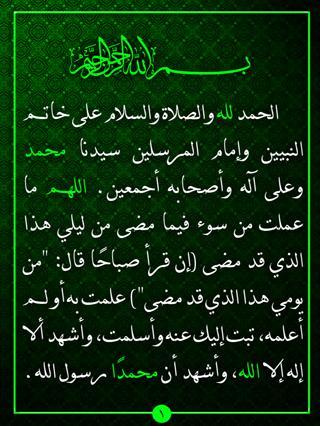 بسم الله الرحمن الرحيم
الحمد لله والصلاة والسلام على خاتم
النبيين وإمام المرسلين سيدنا محمد
وعلى آله وأصحابه أجمعين. اللهم ما
عملت من سوء فيما مضى من ليلي هذا
الذي قد مضى (إن قرأ صباحًا قال: "من
يومي هذا الذي قد مضى") علمت به أو لم
أعلمه، تبت إليك عنه وأسلمت، وأشهد ألا
إله إلا الله، وأشهد أن محمدًا رسول الله.
١